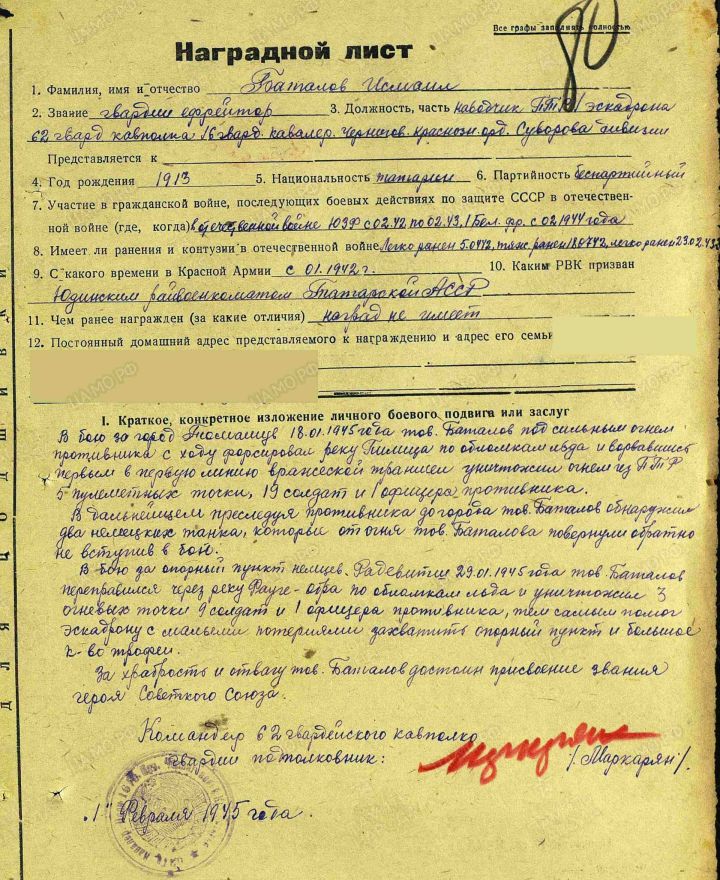 Все графы заполнять полностью
80
Наградной лист
1. Фамилия, имя и отчество Баталов Исмаил
2. Звание гвардии ефрейтор 3. Должность, часть наводчик ПТР 1 эскадрона
62 гвард кавполка 16 гвард кавалер. Чернигов. краснозн. орд. Суворова дивизии
Представляется к
4. Год рождения 1913 5. Национальность татарин 6. Партийность беспартийный
7. Участие в гражданской войне, последующих боевых действиях по защите СССР в отечествен-
ной войне (где, когда) в отечественной войне ЮЗФ с 02.42 по 02.43, 1 Бел. фр. с 02 1944 года
8. Имеет ли ранения и контузии в отечественной войне Легко ранен 5.04.42, тяж. ранен 18.07.42, легко ранен 23.02.43
9. С какого времени в Красной Армии с 01.1942 г. 10. Каким РВК призван
Юдинским райвоенкоматом Татарской АССР
11. Чем ранее награжден (за какие отличия) наград не имеет
12. Постоянный домашний адрес представляемого к награждению и адрес его семьи
I. Краткое, конкретное изложение личного боевого подвига или заслуг
В бою за город 18.01.1945 года тов. Баталов под сильным огнем
противника с ходу форсировал реку Пилица по обломкам льда и ворвавшись
первым в первую линию вражеской траншеи уничтожил огнем из ПТР
5 пулеметных точки, 19 солдат и 1 офицера противника.
В дальнейшем преследуя противника до города тов. Баталов обнаружил
два немецких танка, которые от огня тов. Баталова повернули обратно
не вступив в бой.
В бою за опорный пункт немцев 29.01.1945 года тов. Баталов
переправился через реку Фауле-Обра по обломкам льда и уничтожил 3
огневых точки 9 солдат и 1 офицера противника, тем самым помог
эскадрону с малыми потерями захватить опорный пункт и большое
к-во трофеи.
За храбрость и отвагу тов. Баталов достоин присвоение звания
героя Советского Союза.
Командир 62 гвардейского кавполка
гвардии подполковник: /Маркарян/.
"1" Февраля 1945 года.
ДЛЯ ПОДШИВКИ
ЦАМО.РФ